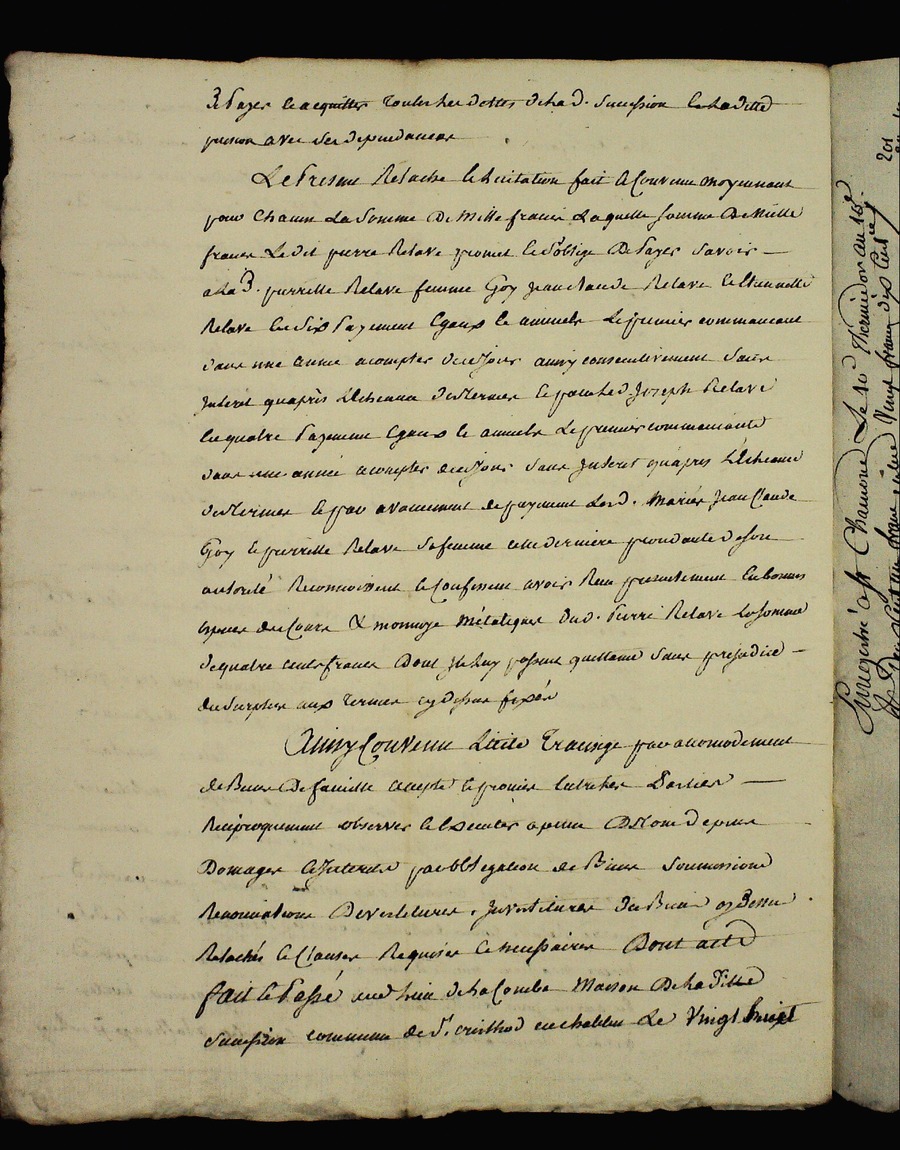 payer et acquitter toutes les dettes de la d. succession et la ditte
avec ses dependances
Le Present Relache et licitation fait et Convenu moyennant
pour Chacun La Somme De Mille francs Laquelle somme De Mille
francs Le dit pierre Relave promet et s'oblige De Payer Savoir
a la d. pierrette Relave femme Goy jean claude Relave et
Relave en dix Payement Egaux et annuels Le premier commencant
dans une année a compter de ce jour ainsy consecutivement sans
jnteret qu'après L'Echeance des Termes et pour le d. joseph Relave
en quatre Payement Egaux et annuels Le premier commencant
dans une année a compter de ce jour sans jnteret qu'après L'Echeance
des Termes et par avancement de payement Les d. Mariés jean Claude
Goy et pierrette Relave Sa femme cette dernière de son
autorité Reconnoissent et Confessent avoir Recu presentement En bonnes
Espèces de Cours & monnoye Métaliques du d. Pierre Relave La somme
de quatre cents francs Dont jls Luy passent quittance Sans prejudice
du Surplus aux Termes cy dessus fixés
Ainsy Convenu par acomodement
de Biens De famille accepté et promis Entre les Parties
Réciproquement observer et Executer a peine De Tous depens
Domages et jnterets par obligation de Biens Soumissions
Renonciations Devestitures, jnvestitures Du Bien cy dessus
Relachés et Clauses Requises et necessaires Dont acte
fait et Passé au lieu de la Combe Maison De la ditte
Succession commune de St. cristhod en chatelus Le Vingt huit
Enregistré a St Chamond Le 10 Thermidor an 18e